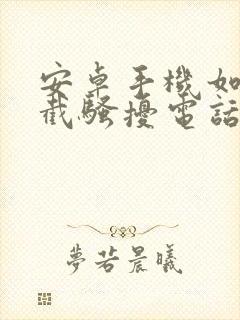 安卓手機如
截騷擾電話
夢若晨曦